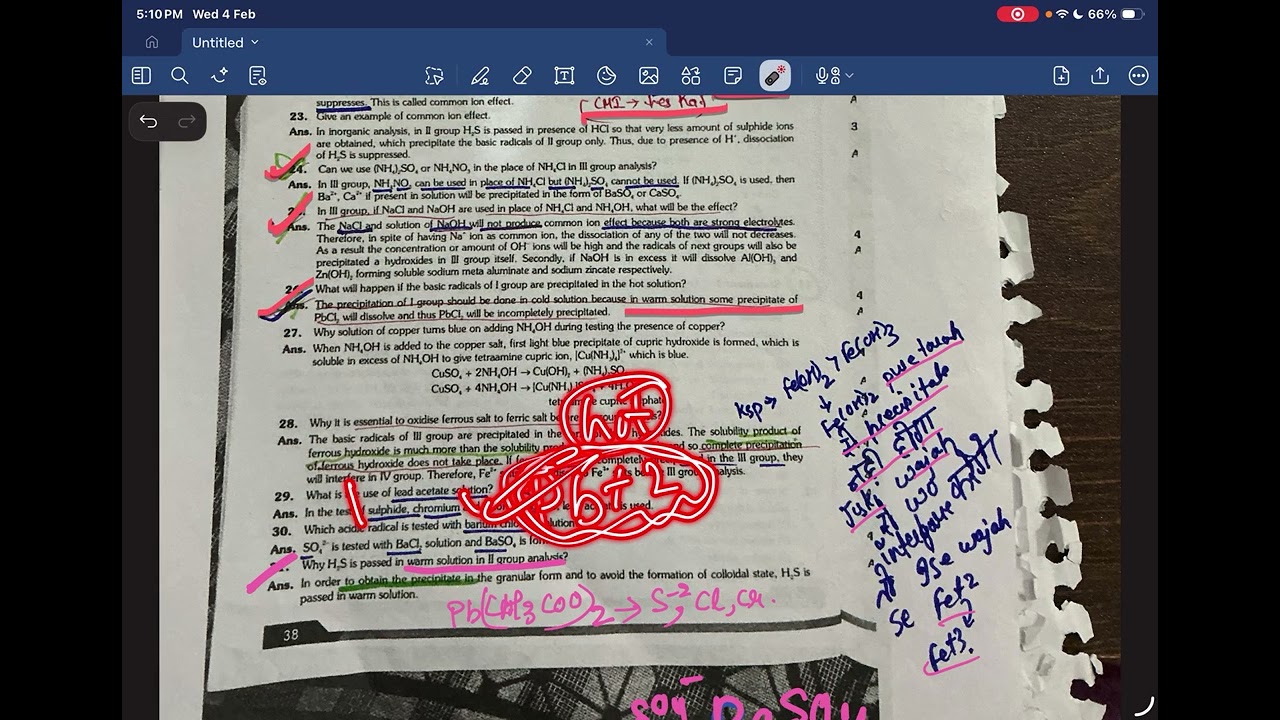 5:10 PM Wed 4 Feb
66%
Untitled
suppresses. This is called common ion effect.
CHI → yes Kaj
23. Give an example of common ion effect.
Ans. In inorganic analysis, in II group H₂S is passed in presence of HCl so that very less amount of sulphide ions
are obtained, which precipitate the basic radicals of II group only. Thus, due to presence of H⁺, dissociation
of H₂S is suppressed.
24. Can we use (NH₄)₂SO₄ or NH₄NO₃ in the place of NH₄Cl in III group analysis?
Ans. In III group, NH₄NO₃ can be used in place of NH₄Cl but (NH₄)₂SO₄ cannot be used. If (NH₄)₂SO₄ is used, then
Ba²⁺, Ca²⁺ if present in solution will be precipitated in the form of BaSO₄ or CaSO₄.
In III group, if NaCl and NaOH are used in place of NH₄Cl and NH₄OH, what will be the effect?
Ans. The NaCl and solution of NaOH will not produce common ion effect because both are strong electrolytes.
Therefore, in spite of having Na⁺ ion as common ion, the dissociation of any of the two will not decreases.
As a result the concentration or amount of OH⁻ ions will be high and the radicals of next groups will also be
precipitated a hydroxides in III group itself. Secondly, if NaOH is in excess it will dissolve Al(OH)₃ and
Zn(OH)₂ forming soluble sodium meta aluminate and sodium zincate respectively.
What will happen if the basic radicals of I group are precipitated in the hot solution?
Ans. The precipitation of I group should be done in cold solution because in warm solution some precipitate of
PbCl₂ will dissolve and thus PbCl₂ will be incompletely precipitated.
27. Why solution of copper turns blue on adding NH₄OH during testing the presence of copper?
Ans. When NH₄OH is added to the copper salt, first light blue precipitate of cupric hydroxide is formed, which is
soluble in excess of NH₄OH to give tetraamine cupric ion, [Cu(NH₃)₄]²⁺ which is blue.
CuSO₄ + 2NH₄OH → Cu(OH)₂ + (NH₄)₂SO₄
CuSO₄ + 4NH₄OH → [Cu(NH₃)
hot
28. Why it is essential to oxidise ferrous salt to ferric salt
Ans. The basic radicals of III group are precipitated in the hydroxides. The solubility product of
ferrous hydroxide is much more than the solubility and so complete precipitation
of ferrous hydroxide does not take place. If in the III group, they
will interfere in IV group. Therefore, Fe²⁺ Fe³⁺ III group analysis.
Pb+2
29. What is use of lead acetate solution?
Ans. In the test sulphide, chromium used.
30. Which acidic radical is tested with barium solution
Ans. SO₄²⁻ is tested with BaCl₂ solution and BaSO₄ is
Why H₂S is passed in warm solution in II group analysis?
Ans. In order to obtain the precipitate in the granular form and to avoid the formation of colloidal state, H₂S is
passed in warm solution.
Pb(CH3COO)2 → S⁻², Cl, Cr.
38
3
A
4
A
4
A
Ksp → Fe(OH)2 > Fe(OH)3
↓
Fe(OH)2 puretarah
precipitate
नही होगा
wajah
interfere करेगा
wajah
se Fe+2
Fe+3.